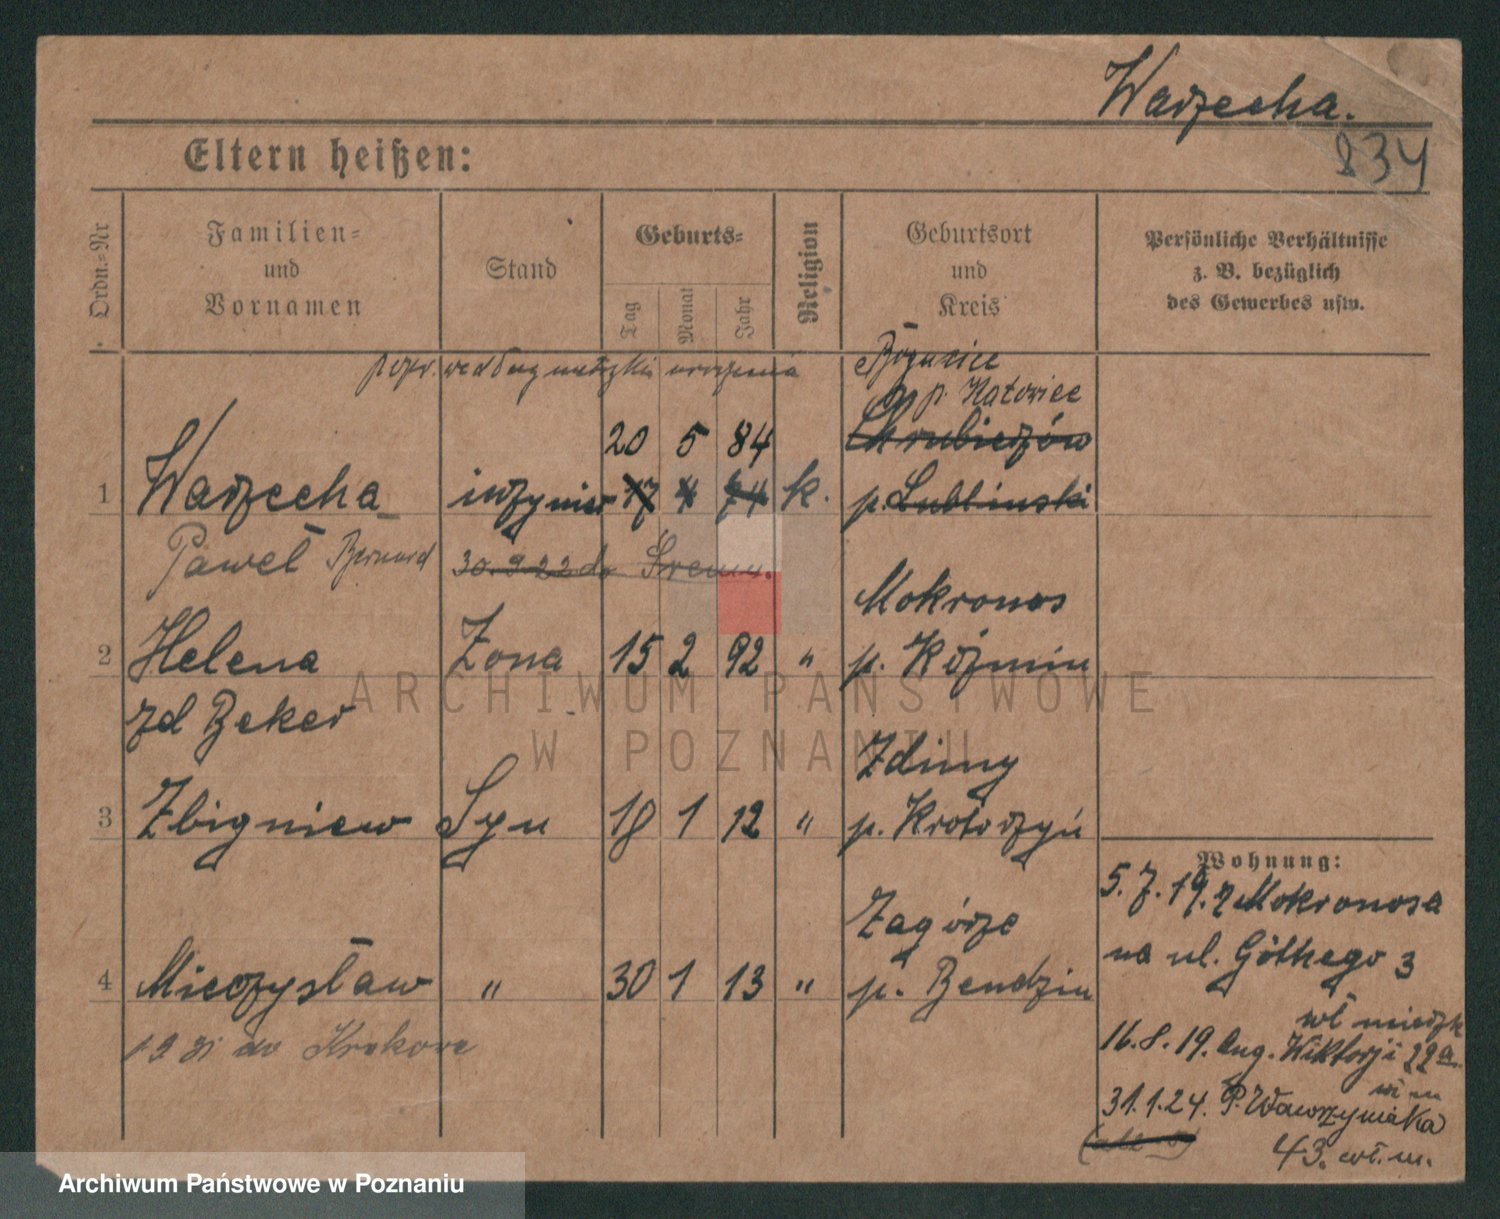 Warzecha.
834
Eltern heißen:
Ordn.-Nr
Familien-
und
Vornamen
Stand
Geburts-
Tag
Monat
Jahr
Religion
Geburtsort
und
Kreis
Persönliche Verhältnisse
z. B. bezüglich
des Gewerbes usw.
popr. według metryki urodzenia
p. Katowice
20 5 84
Hrubieszów
1 Warzecha inżynier 17 4 74 k. p. Lubliński
Paweł Bernard 30.9.22 do Śremu.
Mokronos
2 Helena Żona 15 2 92 " p. Koźmin
zd Beker
Zduny
3 Zbigniew Syn 18 1 12 " p. Krotoszyn
Zagórze
4 Mieczysław " 30 1 13 " p. Bendzin
do Krakowa
Wohnung:
5.7.19. z Mokronosa
na ul. Göthego 3
wł mieszk
16.8.19. Aug. Wiktorji 22a
wł m
31.1.24. P. Wawrzyniaka
43. wł. m.
ARCHIWUM PAŃSTWOWE
W POZNANIU
Archiwum Państwowe w Poznaniu